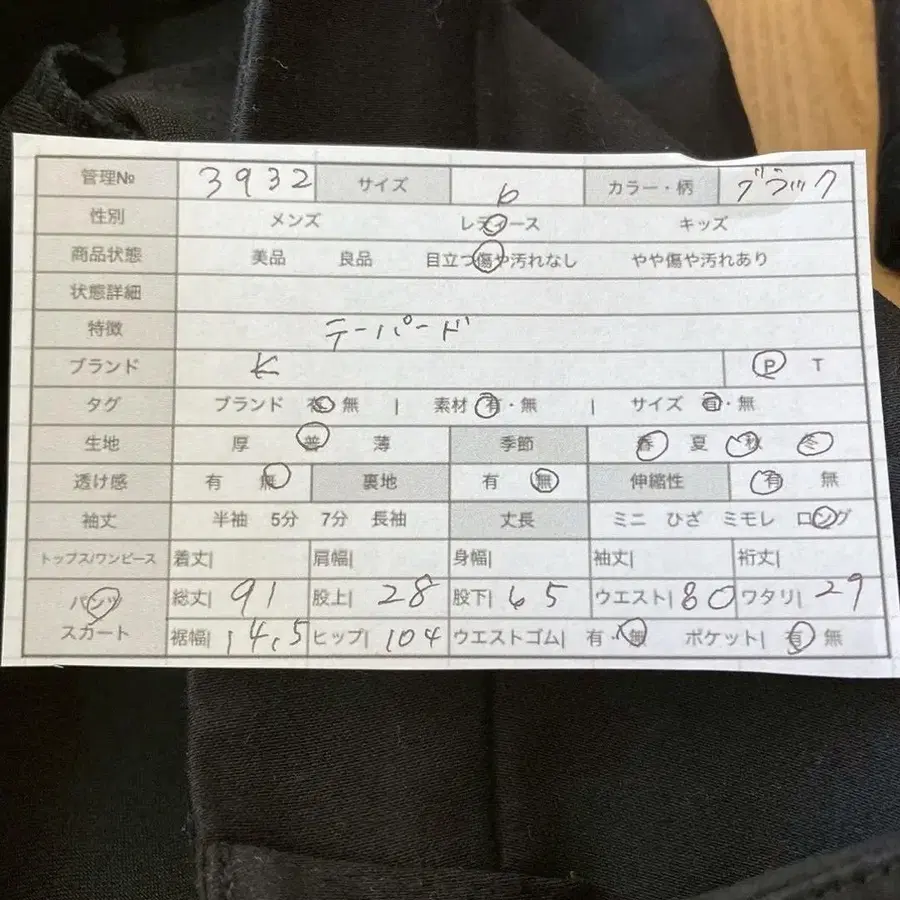 管理№ 3932 サイズ 6 カラー・柄 ブラック
性別 メンズ レディース キッズ
商品状態 美品 良品 目立つ傷や汚れなし やや傷や汚れあり
状態詳細
特徴 テーパード
ブランド K P T
タグ ブランド 有・無 | 素材 有・無 | サイズ 有・無
生地 厚 普 薄 季節 春 夏 秋 冬
透け感 有 無 裏地 有 無 伸縮性 有 無
袖丈 半袖 5分 7分 長袖 丈長 ミニ ひざ ミモレ ロング
トップス/ワンピース 着丈| 肩幅| 身幅| 袖丈| 裄丈|
パンツ 総丈| 91 股上| 28 股下| 65 ウエスト| 80 ワタリ| 29
スカート 裾幅| 14.5 ヒップ| 104 ウエストゴム| 有・無 ポケット| 有 無